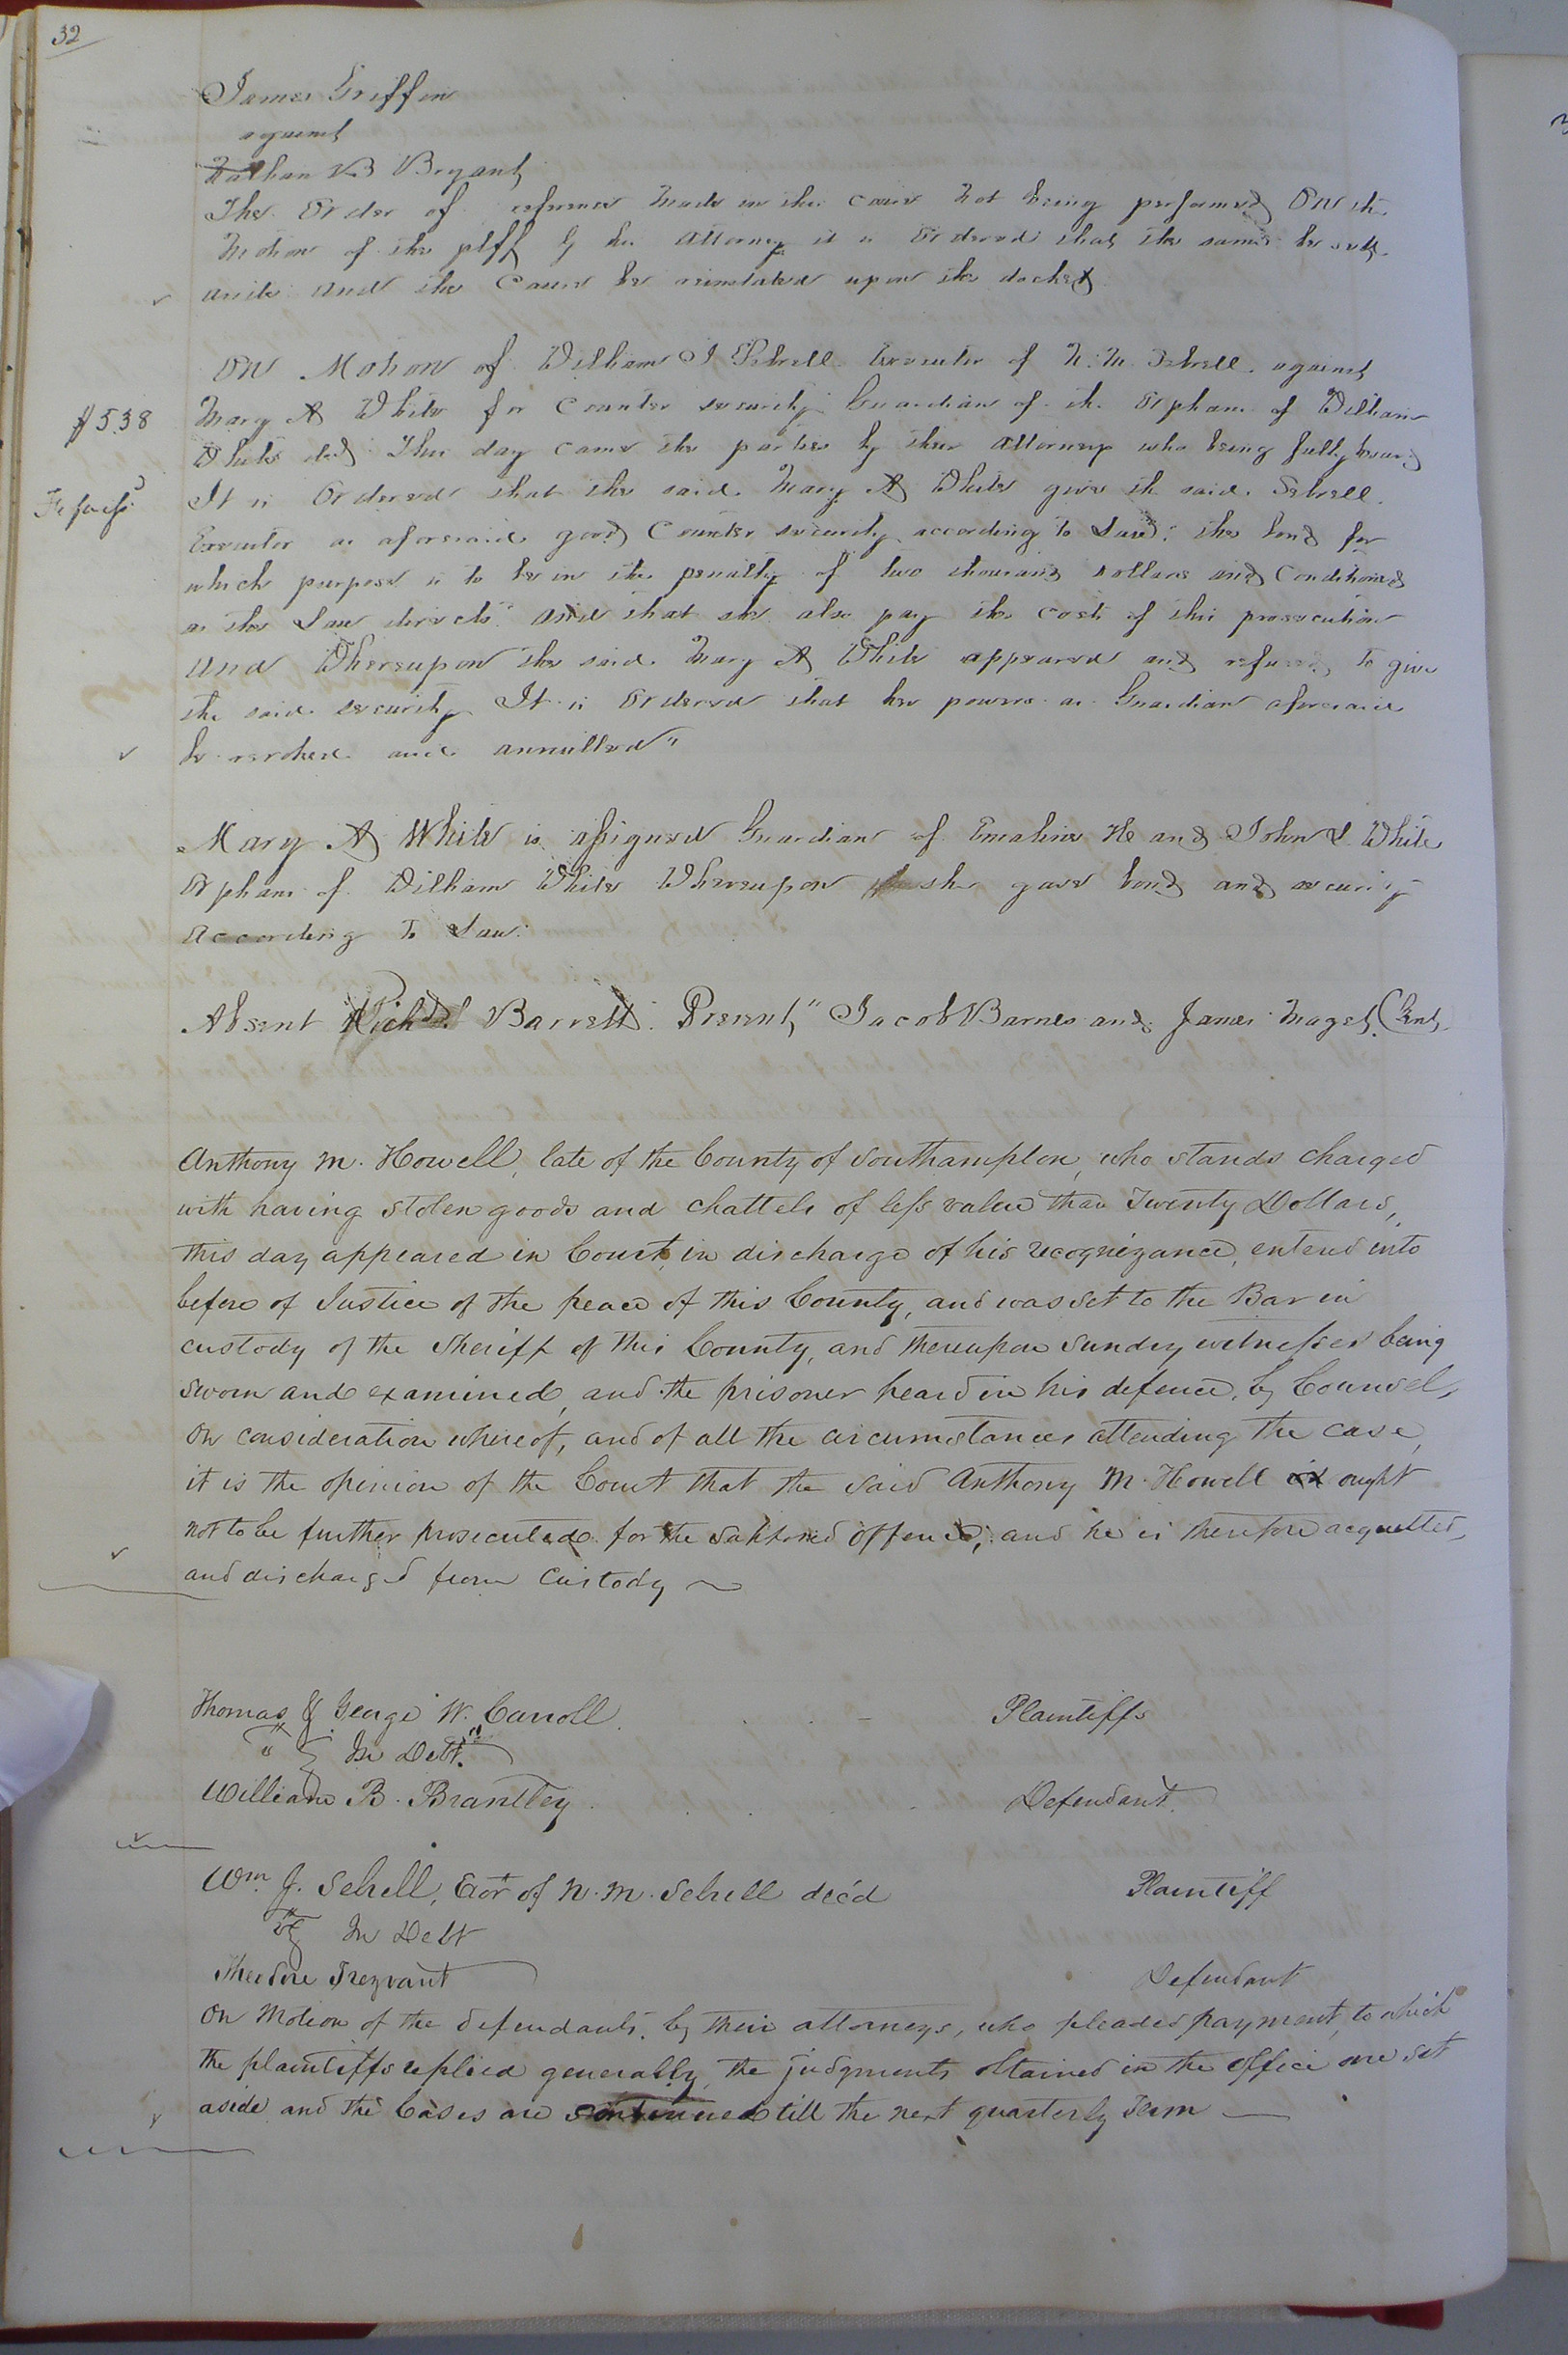 32
James Griffin
against
Nathan B Bryant
The Order of reference made in this cause not being performed On the
motion of the plff by his Attorney it is Ordered that the same be sett
aside and the Cause be reinstated upon the docket
On Motion of William J Sebrell Executor of N. M. Sebrell against
$5.38
Mary A White for Counter security Guardian of the Orphans of William
White decd This day came the parties by their Attorneys who being fully heard
Fi fa issd
It is Ordered that the said Mary A White give the said Sebrell
Executor as aforesaid good Counter security according to Law; the bond for
which purpose is to be in the penalty of two thousand dollars and Conditioned
as the Law directs and that she also pay the costs of this prosecution
And Whereupon the said Mary A White appeared and refused to give
the said security It is Ordered that her powers as Guardian aforesaid
be revoked and annulled"
Mary A White is assigned Guardian of Emaline H and John L White
Orphans of William White Whereupon she gave bond and security
According to Law.
Absent Richd Barrett. Present" Jacob Barnes and James Maget, Gent.
Anthony M. Howell, late of the County of Southampton, who stands charged
with having stolen goods and chattels of less value than Twenty Dollars,
this day appeared in Court, in discharge of his recognizance, entered into
before of Justice of the peace of this County, and was set to the Bar in
custody of the Sheriff of this County, and thereupon sundry witnesses being
sworn and examined, and the prisoner heard in his defence, by Counsel,
On consideration whereof, and of all the circumstances attending the case,
it is the opinion of the Court that the said Anthony M. Howell ought
not to be further prosecuted for the said offence; and he is therefore acquitted,
and discharged from Custody
Thomas & George W. Carroll Plaintiffs
In Debt
William B. Brantley Defendant
Wm. J. Sebrell, Exor of N. M. Sebrell dec'd Plaintiff
vs In Debt
Theodore Trezvant Defendant
On Motion of the defendants, by their attorneys, who pleaded payment, to which
the plaintiffs replied generally, the judgments obtained in the office are set
aside and the Cases are continued till the next quarterly Term